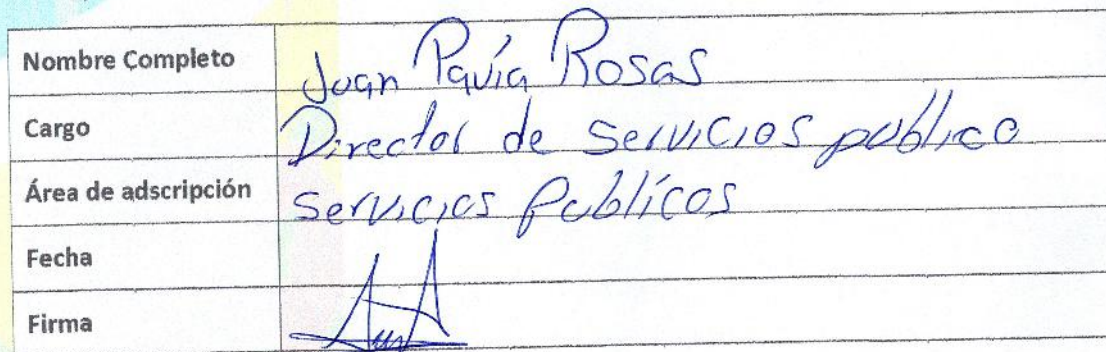 Nombre Completo Juan Pavía Rosas
Cargo Director de Servicios publico
Área de adscripción Servicios Publícos
Fecha
Firma